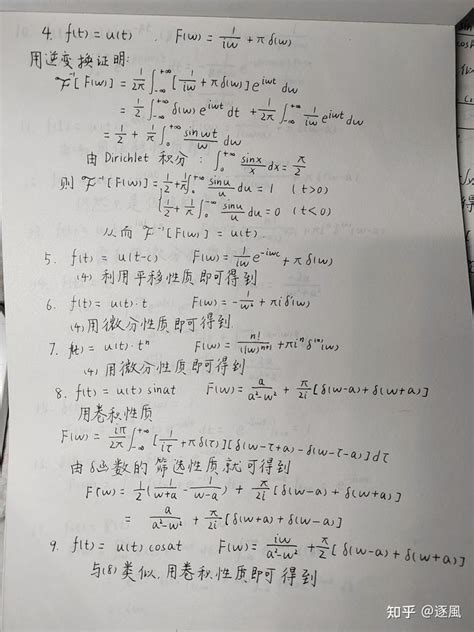 4. f(t) = u(t) . F(w) = 1/(iw) + πδ(w)
用逆变换证明:
ℱ⁻¹[F(w)] = 1/(2π) ∫_{-∞}^{+∞} [1/(iw) + πδ(w)] e^{iwt} dw
= 1/2 ∫_{-∞}^{+∞} δ(w) e^{iwt} dt + 1/(2π) ∫_{-∞}^{+∞} 1/(iw) e^{iwt} dw
= 1/2 + 1/π ∫_0^{+∞} sinwt/w dw
由 Dirichlet 积分: ∫_0^{+∞} sinx/x dx = π/2
则 ℱ⁻¹[F(w)] = { 1/2 + 1/π ∫_0^{+∞} sinu/u du = 1 (t>0)
1/2 + 1/π ∫_0^{-∞} sinu/u du = 0 (t<0)
从而 ℱ⁻¹[F(w)] = u(t).
5. f(t) = u(t-c) F(w) = 1/(iw) e^{-iwc} + πδ(w)
(4) 利用平移性质即可得到
6. f(t) = u(t)·t F(w) = -1/w² + πiδ'(w)
(4)用微分性质即可得到.
7. f(t) = u(t)·tⁿ F(w) = n!/(iw)^{n+1} + πiⁿ δ^{(n)}(w)
(4) 用微分性质即可得到
8. f(t) = u(t) sinat F(w) = a/(a²-w²) + π/(2i) [δ(w-a) + δ(w+a)]
用卷积性质
F(w) = iπ/(2π) ∫_{-∞}^{+∞} [1/(iτ) + πδ(τ)][δ(w-τ+a) - δ(w-τ-a)] dτ
由 δ函数的 筛选性质就可得到
F(w) = 1/2 (1/(w+a) - 1/(w-a)) + π/(2i) [δ(w-a) + δ(w+a)]
= a/(a²-w²) + π/(2i) [δ(w+a) + δ(w-a)]
9. f(t) = u(t) cosat F(w) = iw/(a²-w²) + π/2 [δ(w-a) + δ(w+a)]
与(8) 类似, 用卷积性质即可得到
知乎 @逐風